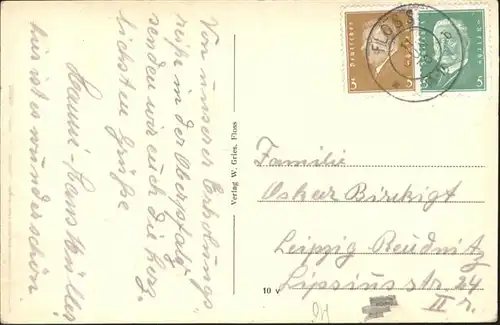 Von unserer Erholungs-
reise in der Oberpfalz
senden wir euch die herz-
lichsten Grüße
Hanni - Hans Müller
hier ist es wunderschön
Verlag W. Gries. Floss
10 v
DEUTSCHES REICH
5
DEUTSCHES REICH
5
FLOSS
Familie
Oskar Birkigt
Leipzig Reudnitz
Lipsiusstr. 24
II r.